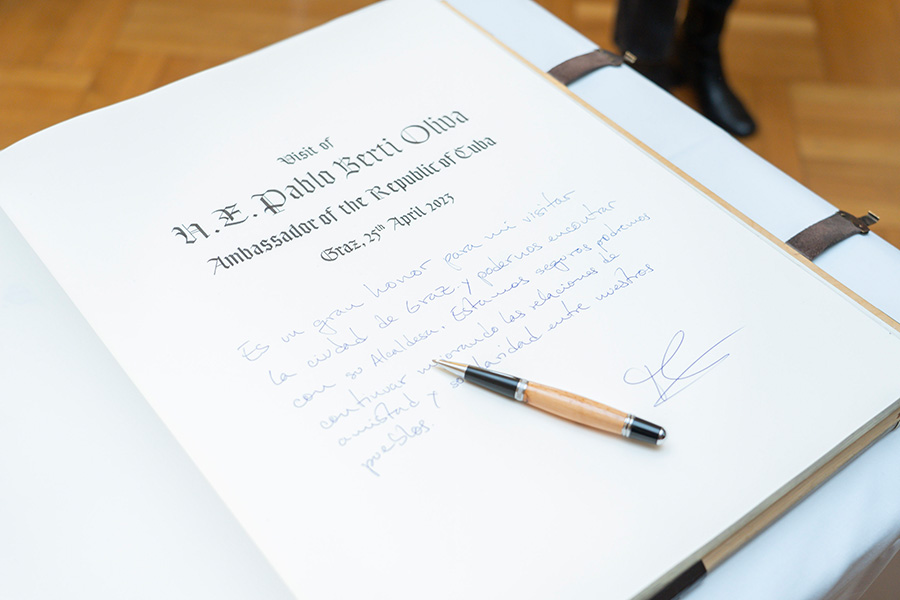 Visit of
H. E. Pablo Berti Oliva
Ambassador of the Republic of Cuba
Graz, 25th April 2023
Es un gran honor para mi visitar
la ciudad de Graz y podernos encontrar
con su Alcaldesa. Estamos seguros podremos
continuar mejorando las relaciones de
amistad y solidaridad entre nuestros
pueblos.